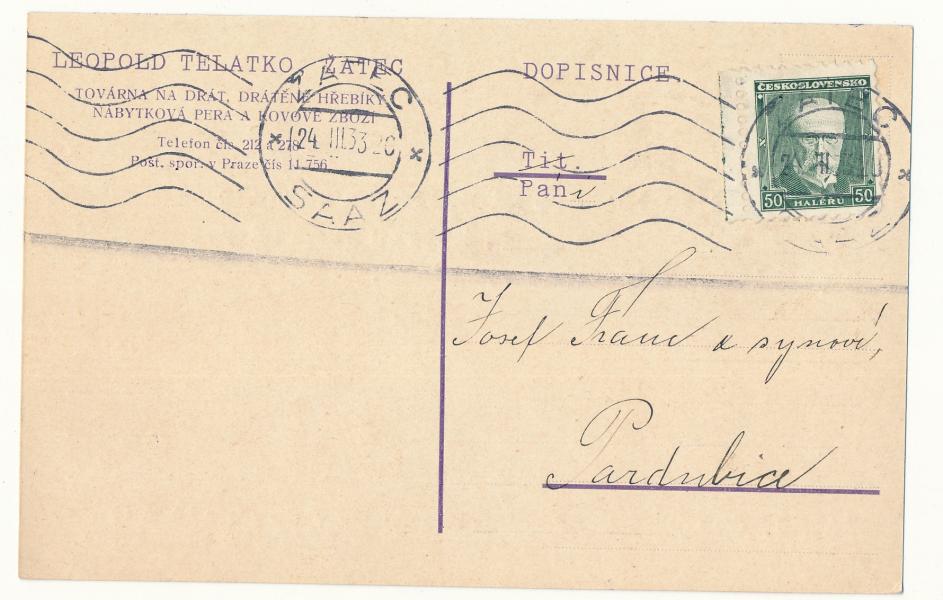 LEOPOLD TELATKO ŽATEC
TOVÁRNA NA DRÁT, DRÁTĚNÉ HŘEBÍKY
NÁBYTKOVÁ PERA A KOVOVÉ ZBOŽÍ
Telefon čís. 212 a 278
Pošt. spor. v Praze čís 11.756
ŽATEC
24 III 33
SAAZ
DOPISNICE
ČESKOSLOVENSKO
50 HALÉŘŮ 50
Tit.
Pán
Josef a synové,
Pardubice